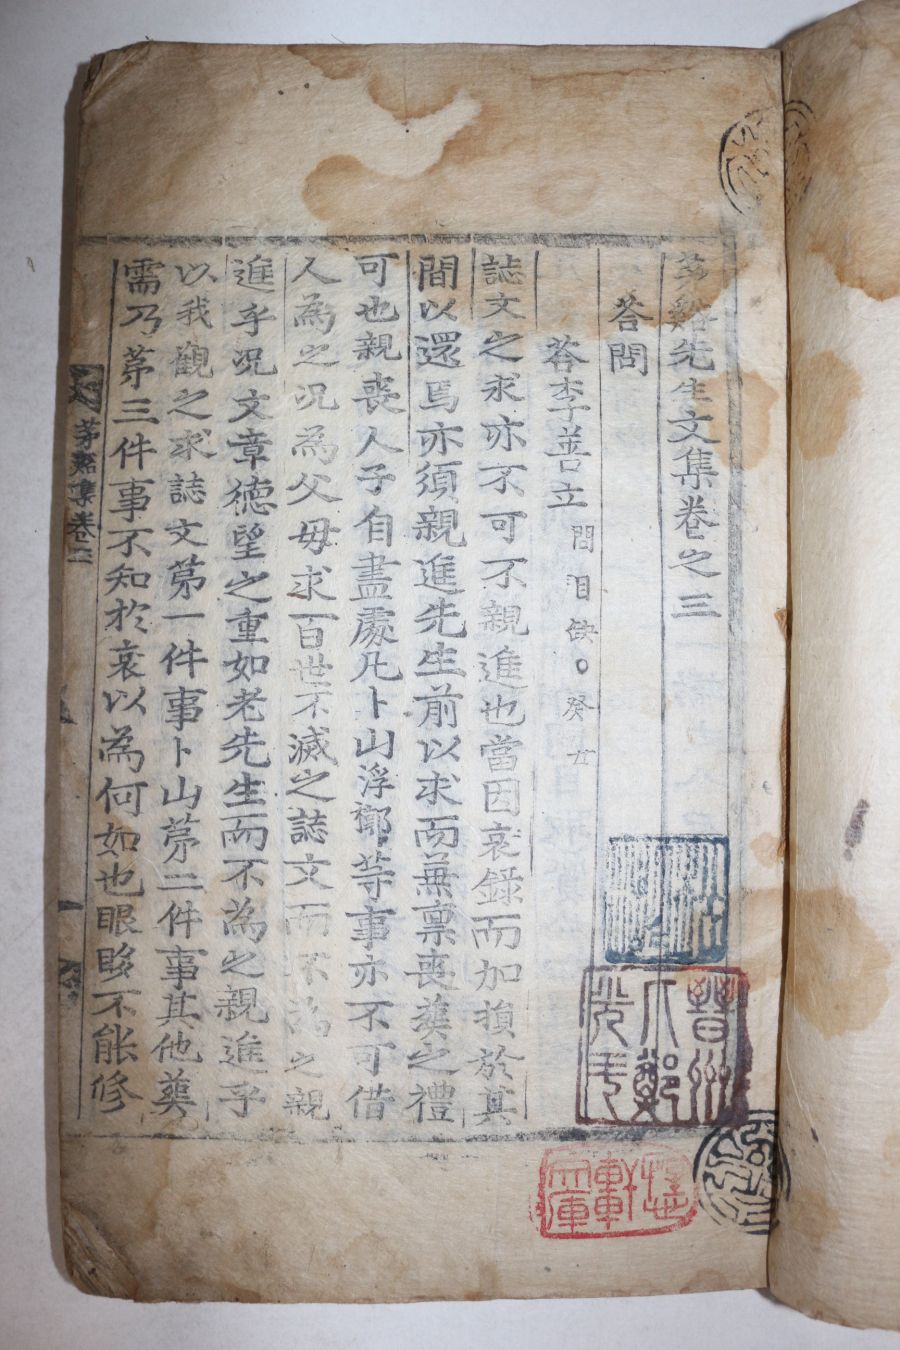 茅谿先生文集卷之三
荅問
荅李善立 問目缺○癸丑
誌文之求亦不可不親進也當因哀錄而加損於其
間以還焉亦須親進先生前以求而兼稟喪葬之禮
可也親喪人子自盡處凡卜山浮槨等事亦不可借
人為之況為父母求百世不滅之誌文而不為之親
進乎況文章德望之重如老先生而不為之親進乎
以我觀之求誌文第一件事卜山第二件事其他葬
需乃第三件事不知於哀以為何如也眼晐不能修
茅谿集卷三
晉州
鄭
軒